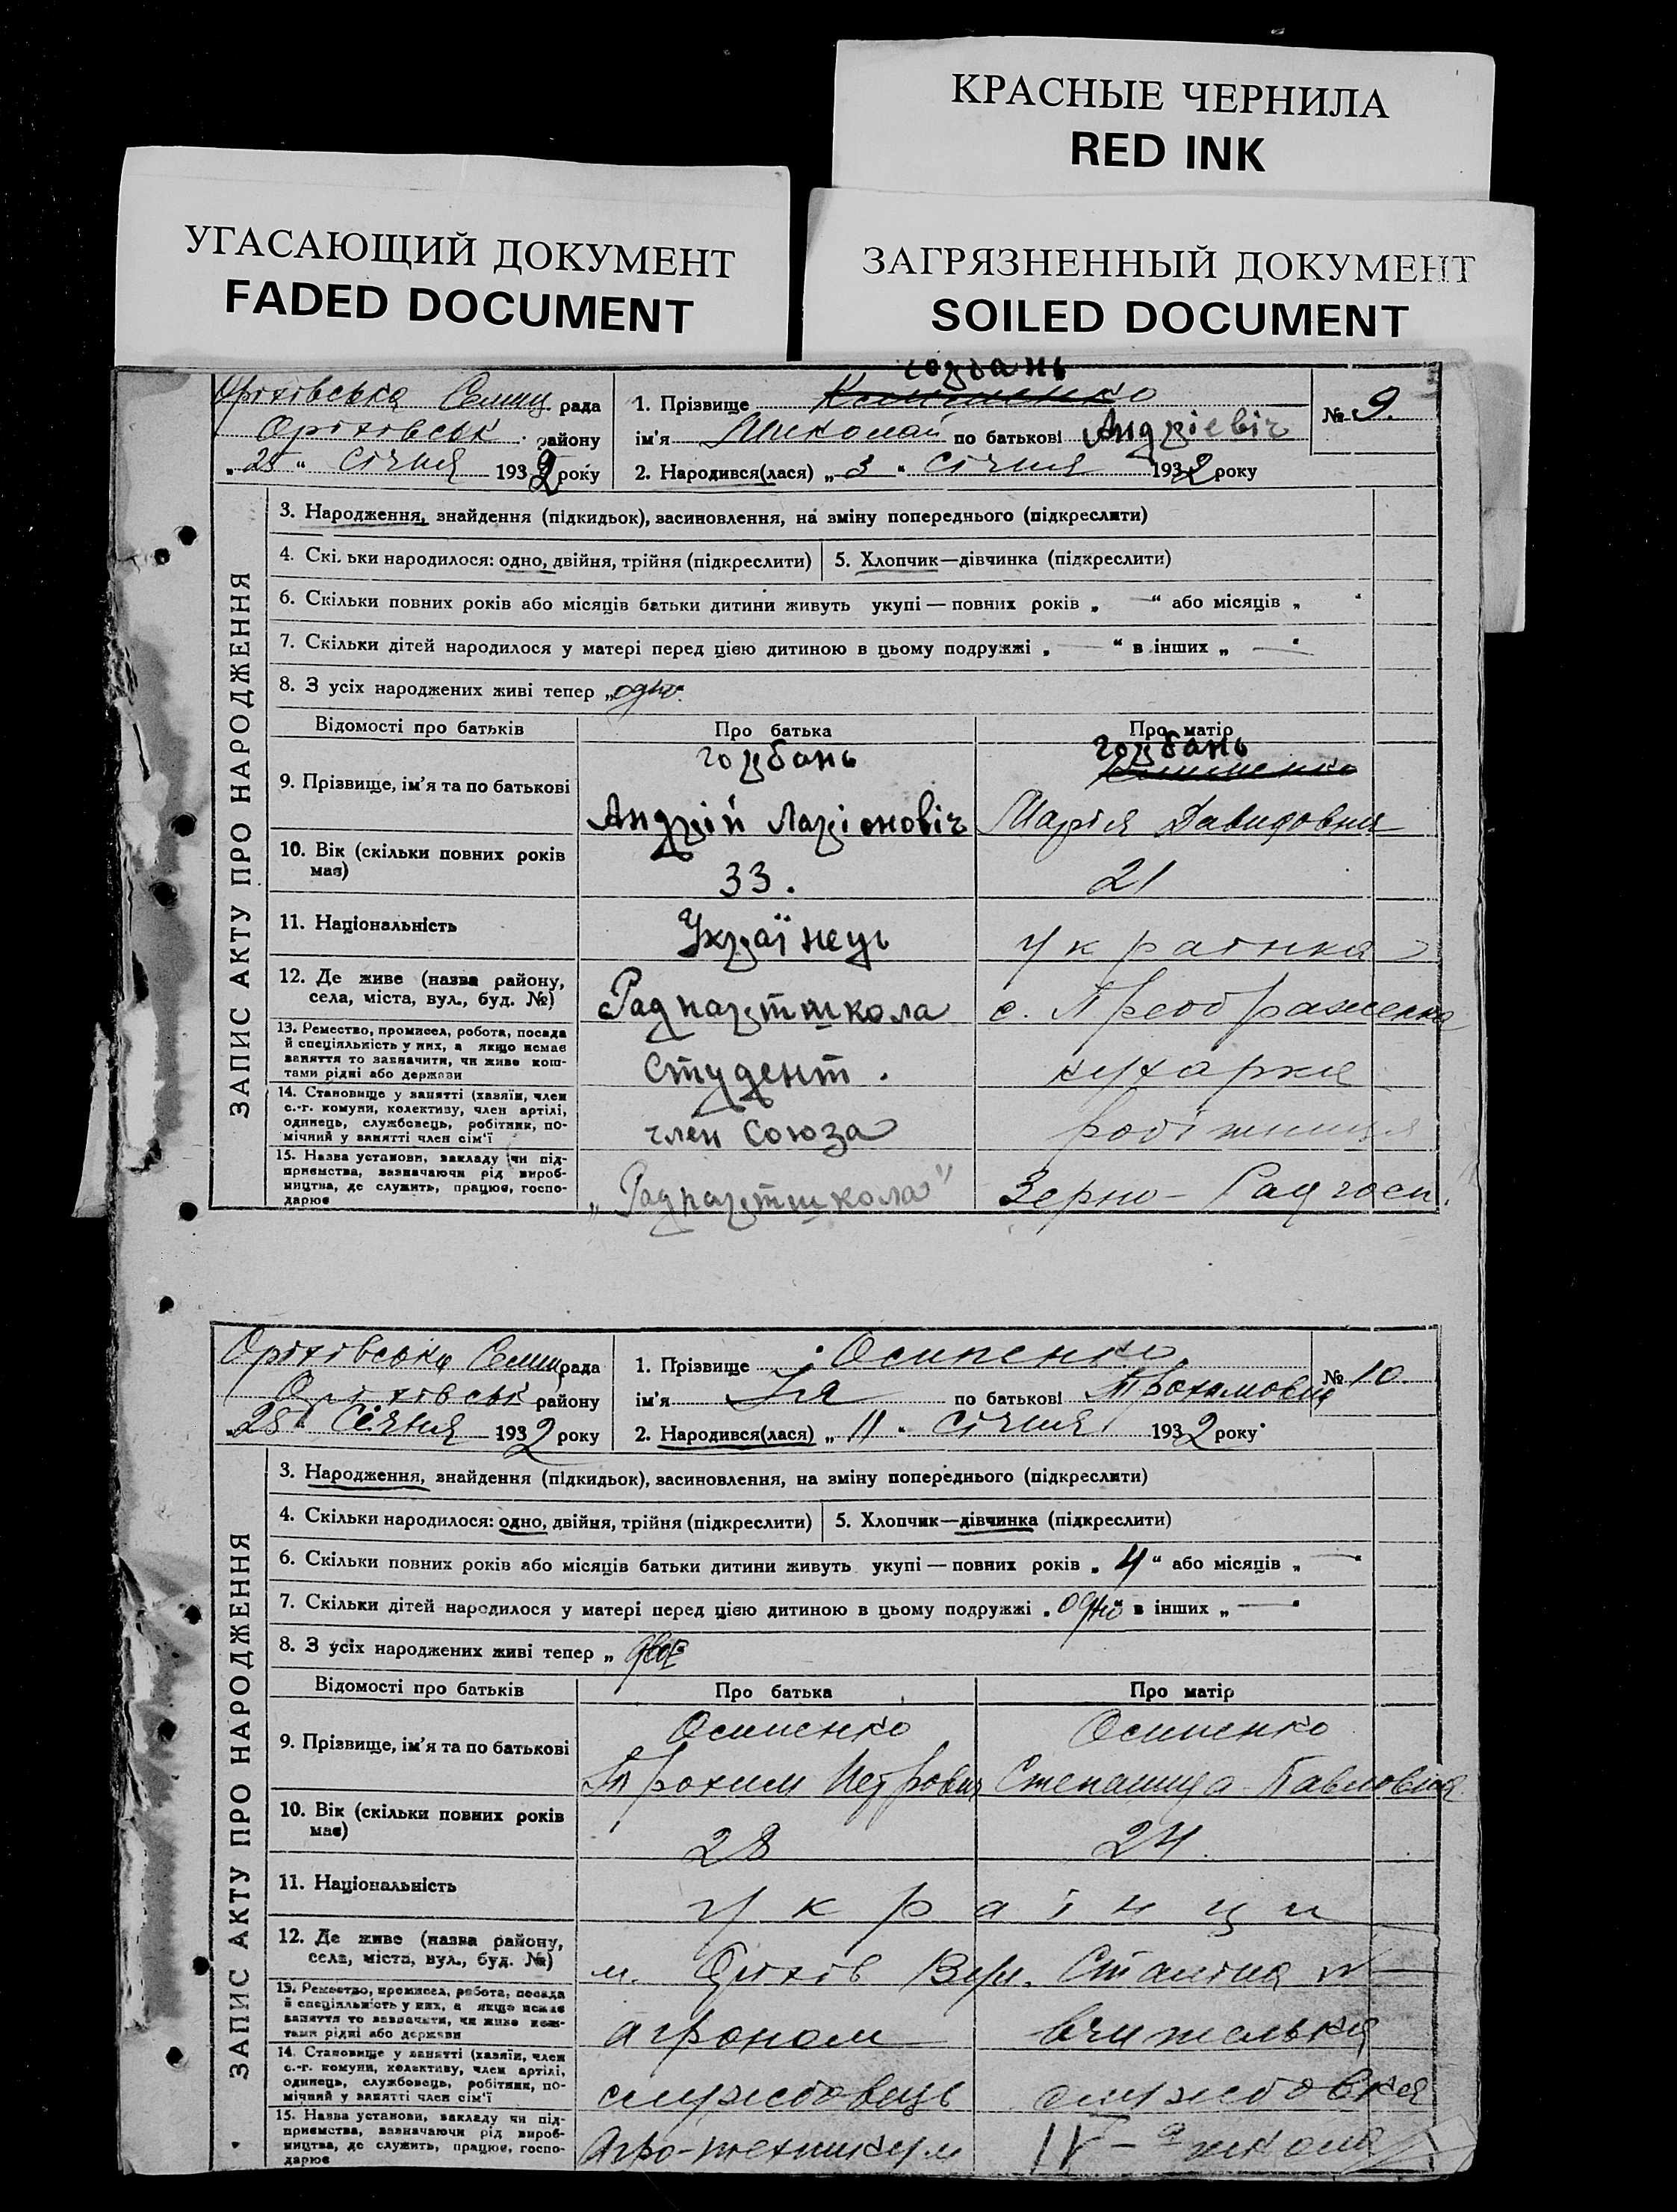 КРАСНЫЕ ЧЕРНИЛА
RED INK
УГАСАЮЩИЙ ДОКУМЕНТ
FADED DOCUMENT
ЗАГРЯЗНЕННЫЙ ДОКУМЕНТ
SOILED DOCUMENT
Оріхівська рада
Оріховськ району
„25“ Січня 1932 року
горбань
1. Прізвище
№ 9.
ім'я Николай по батькові Андріевіч
2. Народився(лася) „3“ Січня 1932 року
ЗАПИС АКТУ ПРО НАРОДЖЕННЯ
3. Народження, знайдення (підкидьок), засиновлення, на зміну попереднього (підкреслити)
4. Скі. ьки народилося: одно, двійня, трійня (підкреслити) 5. Хлопчик—дівчинка (підкреслити)
6. Скільки повних років або місяців батьки дитини живуть укупі — повних років „ —“ або місяців „ “
7. Скільки дітей народилося у матері перед цією дитиною в цьому подружжі „ — “ в інших „ — “
8. З усіх народжених живі тепер „одно“
Відомості про батьків Про батька Про матір
9. Прізвище, ім'я та по батькові
горбань горбань
Андрій Ларіоновіч Марія Давидовна
10. Вік (скільки повних років має) 33. 21
11. Національність Українець Украінка
12. Де живе (назва району, села, міста, вул., буд. №) Радпартшкола с. Преображенка
13. Ремество, промисел, робота, посада й спеціяльність у них, а якщо немає заняття то зазначити, чи живе коштами рідні або держави
Студент. кухарка
14. Становище у занятті (хазяїн, член с.-г. комуни, колективу, член артілі, одинець, службовець, робітник, помічний у занятті член сім'ї
член Союза робітниця
15. Назва установи, закладу чи підприємства, зазначаючи рід виробництва, де служить, працює, господарює
„Радпартшкола" Зерно - Радгосп.
Оріхівська рада
Оріхівськ району
„28“ Січня 1932 року
1. Прізвище Осипенко
№ 10.
ім'я Ія по батькові Трохимовна
2. Народився(лася) „11“ Січня 1932 року
ЗАПИС АКТУ ПРО НАРОДЖЕННЯ
3. Народження, знайдення (підкидьок), засиновлення, на зміну попереднього (підкреслити)
4. Скільки народилося: одно, двійня, трійня (підкреслити) 5. Хлопчик—дівчинка (підкреслити)
6. Скільки повних років або місяців батьки дитини живуть укупі — повних років „4“ або місяців „ — “
7. Скільки дітей народилося у матері перед цією дитиною в цьому подружжі „одно“ в інших „ — “
8. З усіх народжених живі тепер „
Відомості про батьків Про батька Про матір
9. Прізвище, ім'я та по батькові
Осипенко Осипенко
Трохим Петрович Степанида Павловна
10. Вік (скільки повних років має) 28 24.
11. Національність українци
12. Де живе (назва району, села, міста, вул., буд. №) м. Оріхів Вул. Сталіна №—
13. Ремество, промисел, робота, посада й спеціяльність у них, а якщо немає заняття то зазначити, чи живе коштами рідні або держави
агроном вчителька
14. Становище у занятті (хазяїн, член с.-г. комуни, колективу, член артілі, одинець, службовець, робітник, помічний у занятті член сім'ї
службовець службовка
15. Назва установи, закладу чи підприємства, зазначаючи рід виробництва, де служить, працює, господарює
Агро-технікум IV - а школа